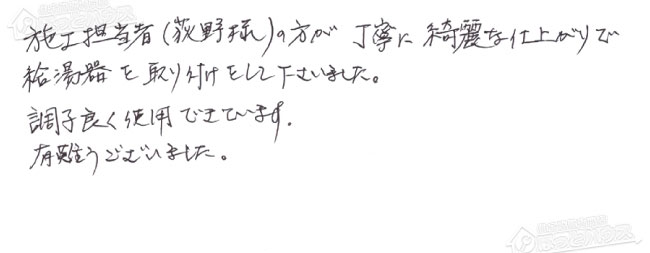 施工担当者(荻野様)の方が丁寧に綺麗な仕上がりで
給湯器を取り付けをして下さいました。
調子良く使用できています。
有難うございました。